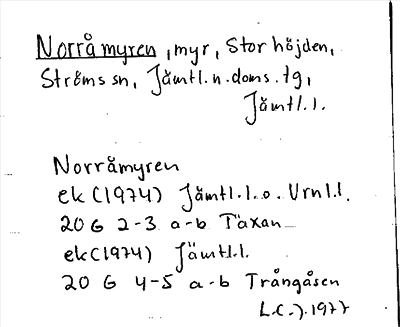 Norråmyren, myr, Storhöjden,
Ströms sn, Jämtl. n. doms. tg,
Jämtl. l.
Norråmyren
ek (1974) Jämtl. l. o. Vrnl. l.
20 G 2-3 a-b Täxan
ek (1974) Jämtl. l.
20 G 4-5 a-b Trångåsen
L.C.J. 1977